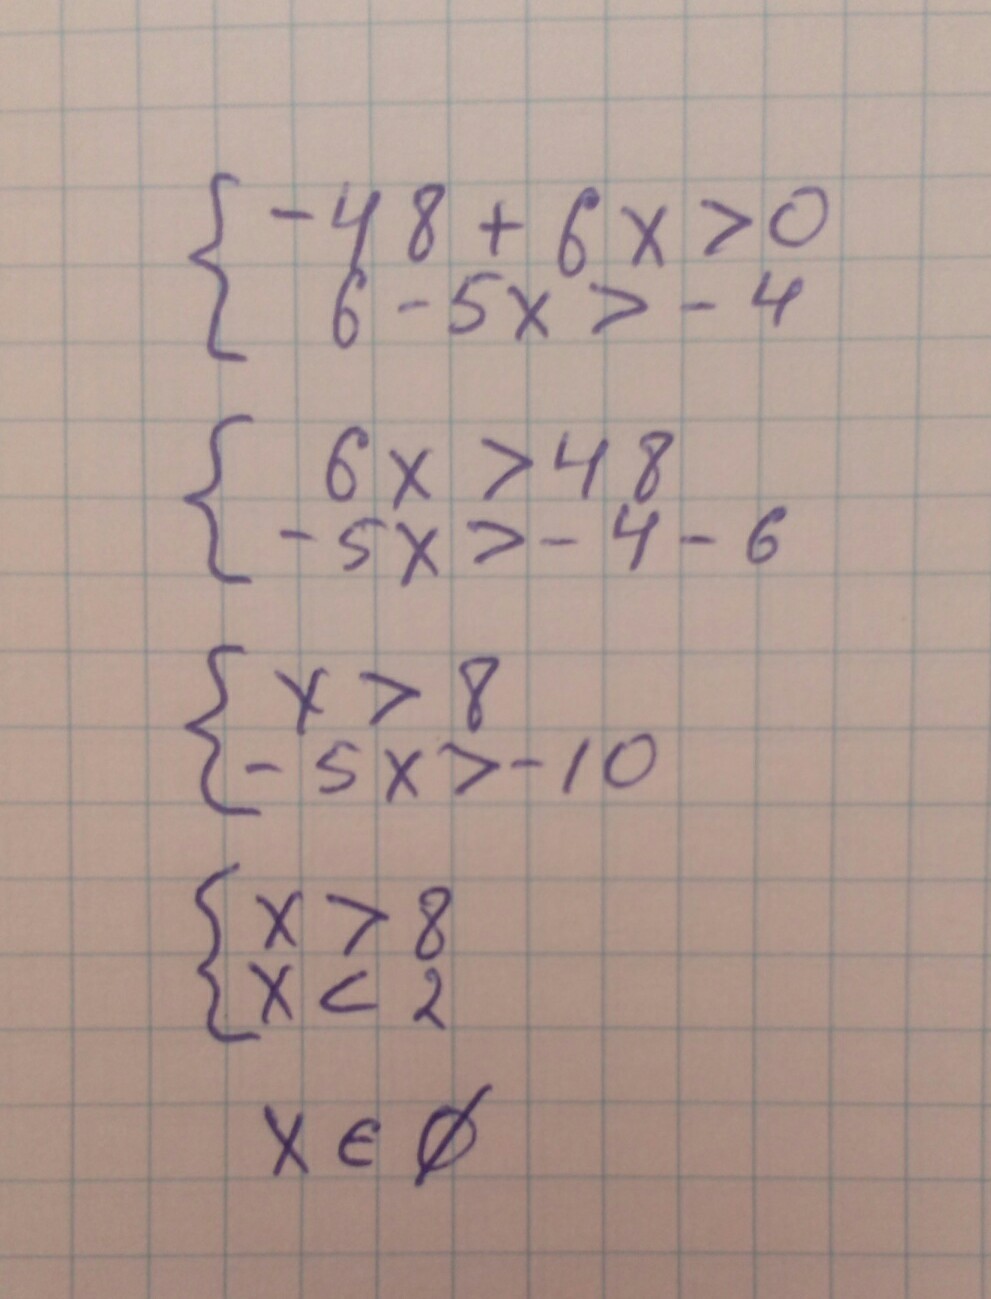 -48 + 6x > 0
6 - 5x > - 4
6x > 48
- 5x > - 4 - 6
x > 8
- 5x > - 10
x > 8
x < 2
x ∈ ∅